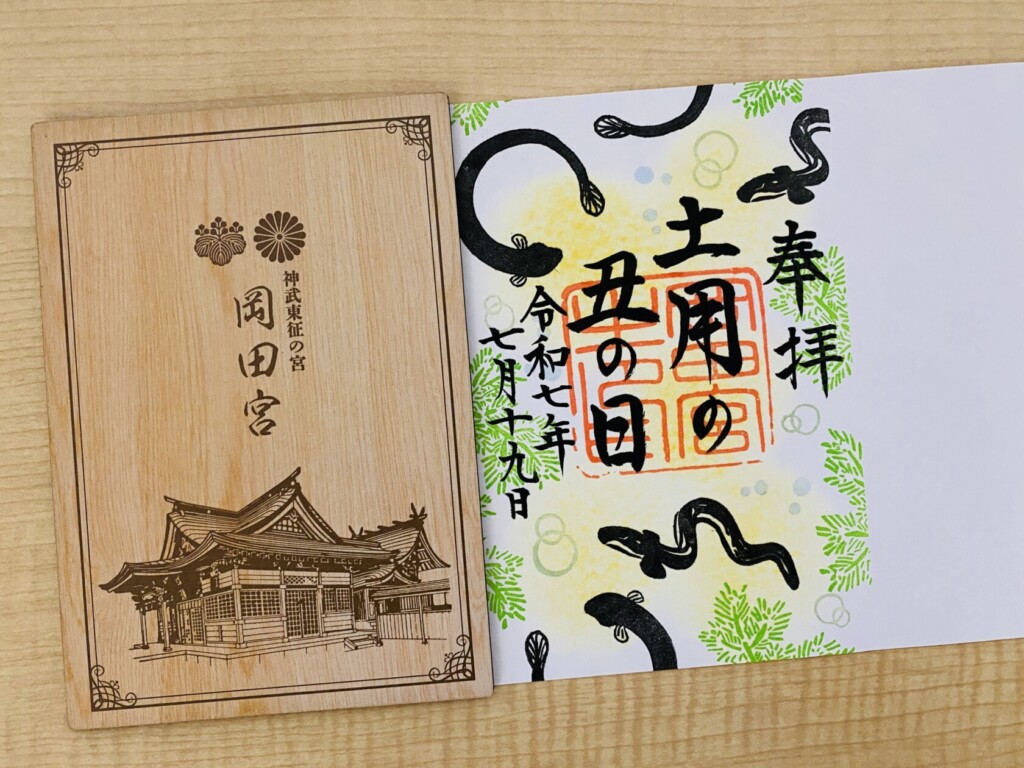 神武東征の宮
岡田宮
奉拝
土用の
丑の日
令和七年
七月十九日